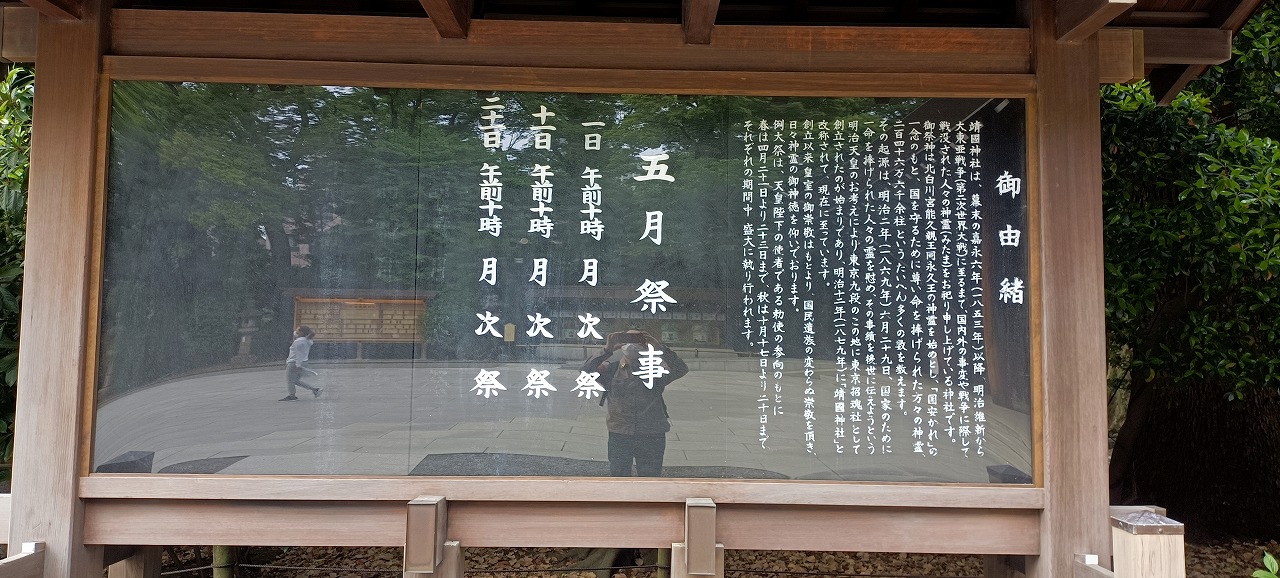 御由緒
靖國神社は、幕末の嘉永六年(一八五三年)以降、明治維新から
大東亜戦争(第二次世界大戦)に至るまで、国内外の事変や戦争に際して
戦没された人々の神霊(みたま)をお祀り申し上げている神社です。
御祭神は北白川宮能久親王同永久王の神霊を始めとし、「国安かれ」の
一念のもと、国を守るために尊い命を捧げられた方々の神霊、
二百四十六万六千余柱というたいへん多くの数を数えます。
その起源は、明治二年(一八六九年)六月二十九日、国家のために
一命を捧げられた人々の霊を慰め、その事績を後世に伝えようという
明治天皇のお考えにより東京九段のこの地に東京招魂社として
創立されたのが始まりであり、明治十二年(一八七九年)に「靖國神社」と
改称されて、現在に至っています。
創立以来皇室の御崇敬はもとより、国民遺族の変わらぬ崇敬を頂き、
日々神霊の御神徳を仰いでおります。
例大祭は、天皇陛下の使者である勅使の参向のもとに
春は四月二十一日より二十三日まで、秋は十月十七日より二十日まで
それぞれの期間中盛大に執り行われます。
五月祭事
一日 午前十時 月次祭
十一日 午前十時 月次祭
二十一日 午前十時 月次祭